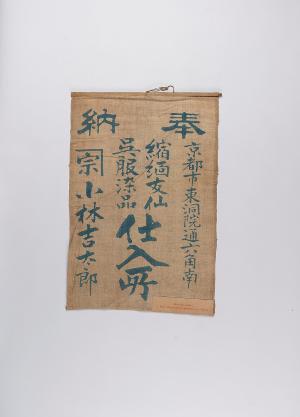 奉納
京都市東洞院通六角南
縮緬友仙
呉服染品
仕入所
宗小林吉太郎